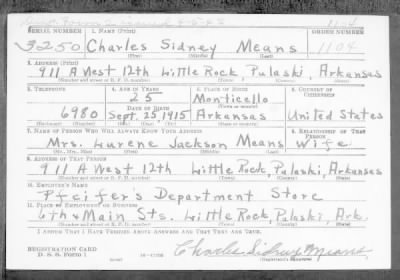 1104
SERIAL NUMBER 1. NAME (Print) ORDER NUMBER
3250 Charles Sidney Means 1104
(First) (Middle) (Last)
2. ADDRESS (Print)
911 A West 12th Little Rock, Pulaski, Arkansas
(Number and street or R. F. D. number) (Town) (County) (State)
3. TELEPHONE 4. AGE IN YEARS 5. PLACE OF BIRTH 6. COUNTRY OF CITIZENSHIP
25 Monticello
DATE OF BIRTH (Town or county)
6980 Sept. 25, 1915 Arkansas United States
(Exchange) (Number) (Mo.) (Day) (Yr.) (State or country)
7. NAME OF PERSON WHO WILL ALWAYS KNOW YOUR ADDRESS 8. RELATIONSHIP OF THAT PERSON
Mrs. Lurene Jackson Means Wife
(Mr., Mrs., Miss) (First) (Middle) (Last)
9. ADDRESS OF THAT PERSON
911 A West 12th Little Rock, Pulaski, Arkansas
(Number and street or R. F. D. number) (Town) (County) (State)
10. EMPLOYER'S NAME
Pfeifer's Department Store
11. PLACE OF EMPLOYMENT OR BUSINESS
6th & Main Sts. Little Rock, Pulaski, Ark.
(Number and street or R. F. D. number) (Town) (County) (State)
I AFFIRM THAT I HAVE VERIFIED ABOVE ANSWERS AND THAT THEY ARE TRUE.
REGISTRATION CARD
D. S. S. FORM 1
Charles Sidney Means
(Registrant's signature)